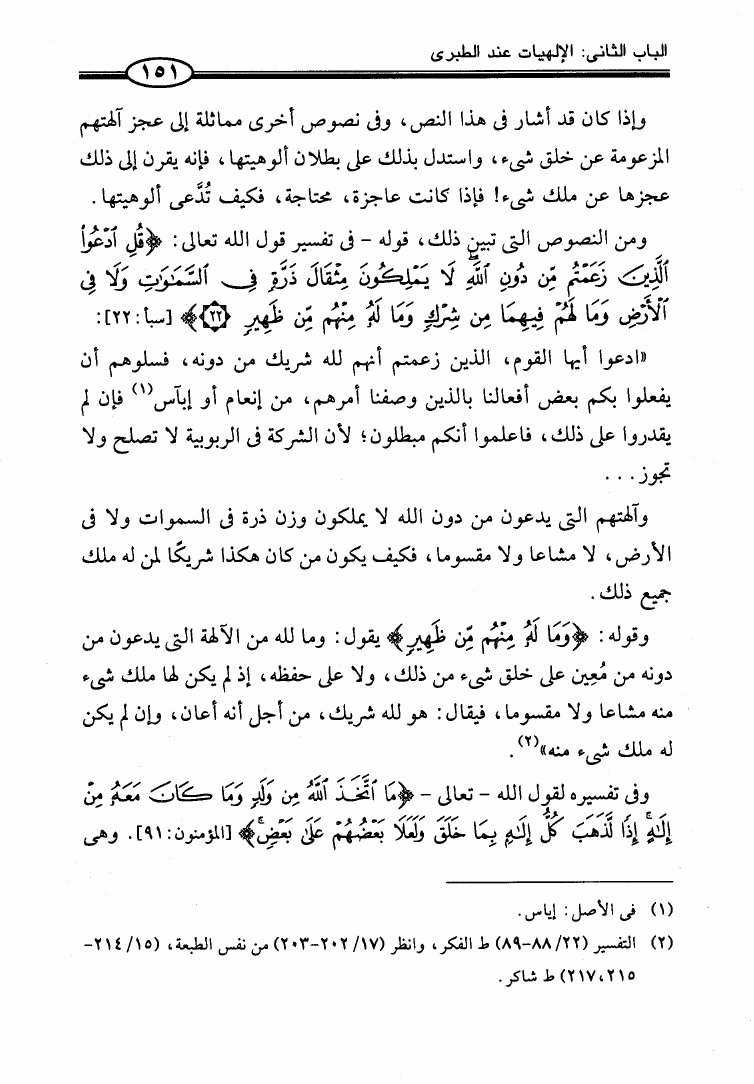 الباب الثانى: الإلهيات عند الطبرى
١٥١
وإذا كان قد أشار فى هذا النص، وفى نصوص أخرى مماثلة إلى عجز آلهتهم
المزعومة عن خلق شىء، واستدل بذلك على بطلان ألوهيتها، فإنه يقرن إلى ذلك
عجزها عن ملك شىء! فإذا كانت عاجزة، محتاجة، فكيف تُدَّعى ألوهيتها.
ومن النصوص التى تبين ذلك، قوله - فى تفسير قول الله تعالى: ﴿قُلِ ٱدْعُوا۟
ٱلَّذِينَ زَعَمْتُم مِّن دُونِ ٱللَّهِ لَا يَمْلِكُونَ مِثْقَالَ ذَرَّةٍ فِى ٱلسَّمَٰوَٰتِ وَلَا فِى
ٱلْأَرْضِ وَمَا لَهُمْ فِيهِمَا مِن شِرْكٍ وَمَا لَهُۥ مِنْهُم مِّن ظَهِيرٍ ٢٢﴾ [سبأ:٢٢]:
«ادعوا أيها القوم، الذين زعمتم أنهم لله شريك من دونه، فسلوهم أن
يفعلوا بكم بعض أفعالنا بالذين وصفنا أمرهم، من إنعام أو إبآس(١) فإن لم
يقدروا على ذلك، فاعلموا أنكم مبطلون؛ لأن الشركة فى الربوبية لا تصلح ولا
تجوز...
وآلهتهم التى يدعون من دون الله لا يملكون وزن ذرة فى السموات ولا فى
الأرض، لا مشاعا ولا مقسوما، فكيف يكون من كان هكذا شريكًا لمن له ملك
جميع ذلك.
وقوله: ﴿وَمَا لَهُۥ مِنْهُم مِّن ظَهِيرٍ﴾ يقول: وما لله من الآلهة التى يدعون من
دونه من مُعِين على خلق شىء من ذلك، ولا على حفظه، إذ لم يكن لها ملك شىء
منه مشاعا ولا مقسوما، فيقال: هو لله شريك، من أجل أنه أعان، وإن لم يكن
له ملك شىء منه»(٢).
وفى تفسيره لقول الله - تعالى - ﴿مَا ٱتَّخَذَ ٱللَّهُ مِن وَلَدٍ وَمَا كَانَ مَعَهُۥ مِنْ
إِلَٰهٍ ۚ إِذًا لَّذَهَبَ كُلُّ إِلَٰهٍۭ بِمَا خَلَقَ وَلَعَلَا بَعْضُهُمْ عَلَىٰ بَعْضٍ ۚ﴾ [المؤمنون:٩١]. وهى
(١) فى الأصل: إياس.
(٢) التفسير (٢٢/ ٨٨-٨٩) ط الفكر، وانظر (١٧/ ٢٠٢-٢٠٣) من نفس الطبعة، (١٥/ ٢١٤-
٢١٥، ٢١٧) ط شاكر.